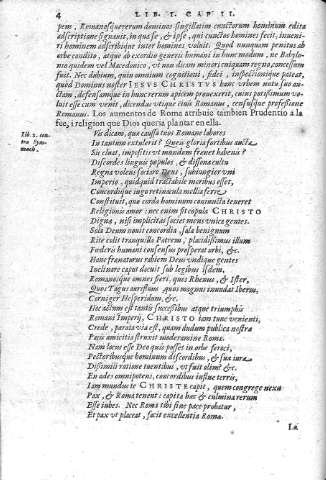 4 LIB. I. CAP. II.
pem, Romanosque rerum dominos singillatim censitorum hominum edita
adscriptione signavit, in qua se, & ipse, qui cunctos homines fecit, inveni-
ri hominem adscribique inter homines voluit. Quod nunquam penitus ab
orbe condito, atque ab exordio generis humani in hunc modum, ne Babylo-
nio quidem vel Macedonico, ut non dicam minori cuiquam regno, concessum
fuit. Nec dubium, quin omnium cognitioni, fidei, inspectionique pateat,
quod Dominus noster IESVS CHRISTVS hanc urbem nutu suo au-
ctam, defensamque in hunc rerum apicem provexerit, cuius potissimum vo-
luit esse cum venit, dicendus utique civis Romanus, census que professione
Romani. Los aumentos de Roma atribuie tambien Prudentio a la
fue, i religion que Dios queria plantar en ella.
Lib. 2. con-
tra Sym-
mach.
Vis dicam, quae caussa tuos Romane labores
In tantum extulerit? Quis gloria fortibus aucta
Sic cluat, impositis ut mundum frenet habenis?
Discordes linguis populos, & dissona cultu
Regna volens sociare Deus, subiungier uni
Imperio, quidquid tractabile moribus esset,
Concordique iugo retinacula mollia ferre
Constituit, quo corda hominum coniuncta teneret
Religionis amor: nec enim fit copula CHRISTO
Digna, nisi implicitas societ mens unica gentes.
Sola Deum novit concordia, sola benignum
Rite colit tranquilla Patrem, placidissimus illum
Foederis humani consensus prosperat orbi, &c.
Hanc frenaturus rabiem Deus undique gentes
Inclinare caput docuit sub legibus isdem,
Romanosque omnes fieri, quos Rhenus, & Ister,
Quos Tagus aurifluus, quos magnus inundat Iberus,
Corniger Hesperidum, &c.
Hoc actum est tantis successibus atque triumphis
Romani Imperij, CHRISTO iam tunc venienti,
Crede, parata via est, quam dudum publica nostrae
Pacis amicitia struxit moderamine Romae.
Nam locus esse Deo quis posset in orbe feroci,
Pectoribusque hominum discordibus, & sua iura
Dissimili ratione tuentibus, ut fuit olim? &c.
En ades omnipotens, concordibus influe terris,
Iam mundus te CHRISTE capit, quem congrege nexu
Pax, & Roma tenent: capita haec & culmina rerum
Esse iubes. Nec Roma tibi sine pace probatur,
Et pax ut placeat, facit excellentia Romae.
La